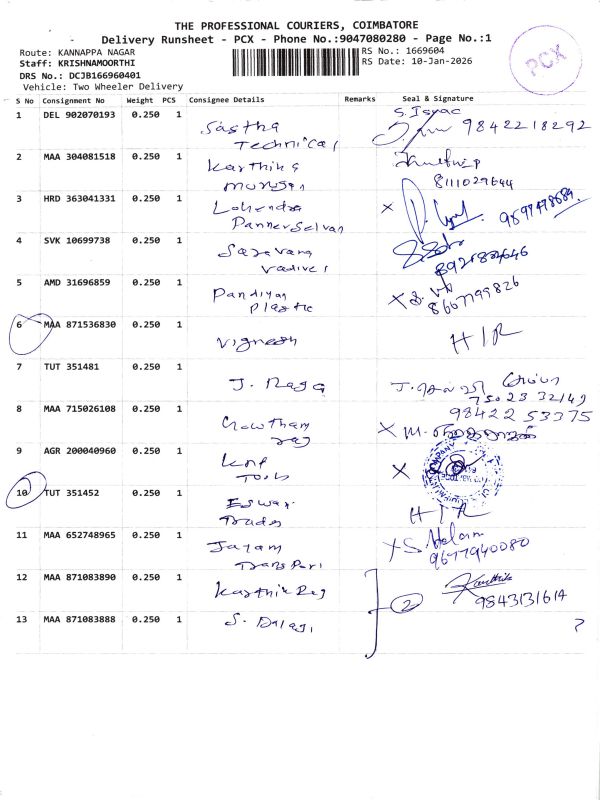 THE PROFESSIONAL COURIERS, COIMBATORE
Delivery Runsheet - PCX - Phone No.:9047080280 - Page No.:1
Route: KANNAPPA NAGAR
Staff: KRISHNAMOORTHI
DRS No.: DCJB166960401
Vehicle: Two Wheeler Delivery
RS No.: 1669604
RS Date: 10-Jan-2026
PCX
S No Consignment No Weight PCS Consignee Details Remarks Seal & Signature
1 DEL 902070193 0.250 1 Sastha Technical S. Isyac 9842218292
2 MAA 304081518 0.250 1 Karthika murugan 8111029644
3 HRD 363041331 0.250 1 Lohendra Panner Selvan X
4 SVK 10699738 0.250 1 Saravana vadivel
5 AMD 31696859 0.250 1 Pandiyan Plastic X 8667799826
6 MAA 871536830 0.250 1 Vignesh H I R
7 TUT 351481 0.250 1 J. Raga 75023 32149
8 MAA 715026108 0.250 1 Gowtham raj 98422 53375 X
9 AGR 200040960 0.250 1 KNP Tools X
10 TUT 351452 0.250 1 Eswar Trades H I R
11 MAA 652748965 0.250 1 Jayam Transport X 9677940080
12 MAA 871083890 0.250 1 Karthik Raj 2 Karthik 9843131614
13 MAA 871083888 0.250 1 S. Balaji ?